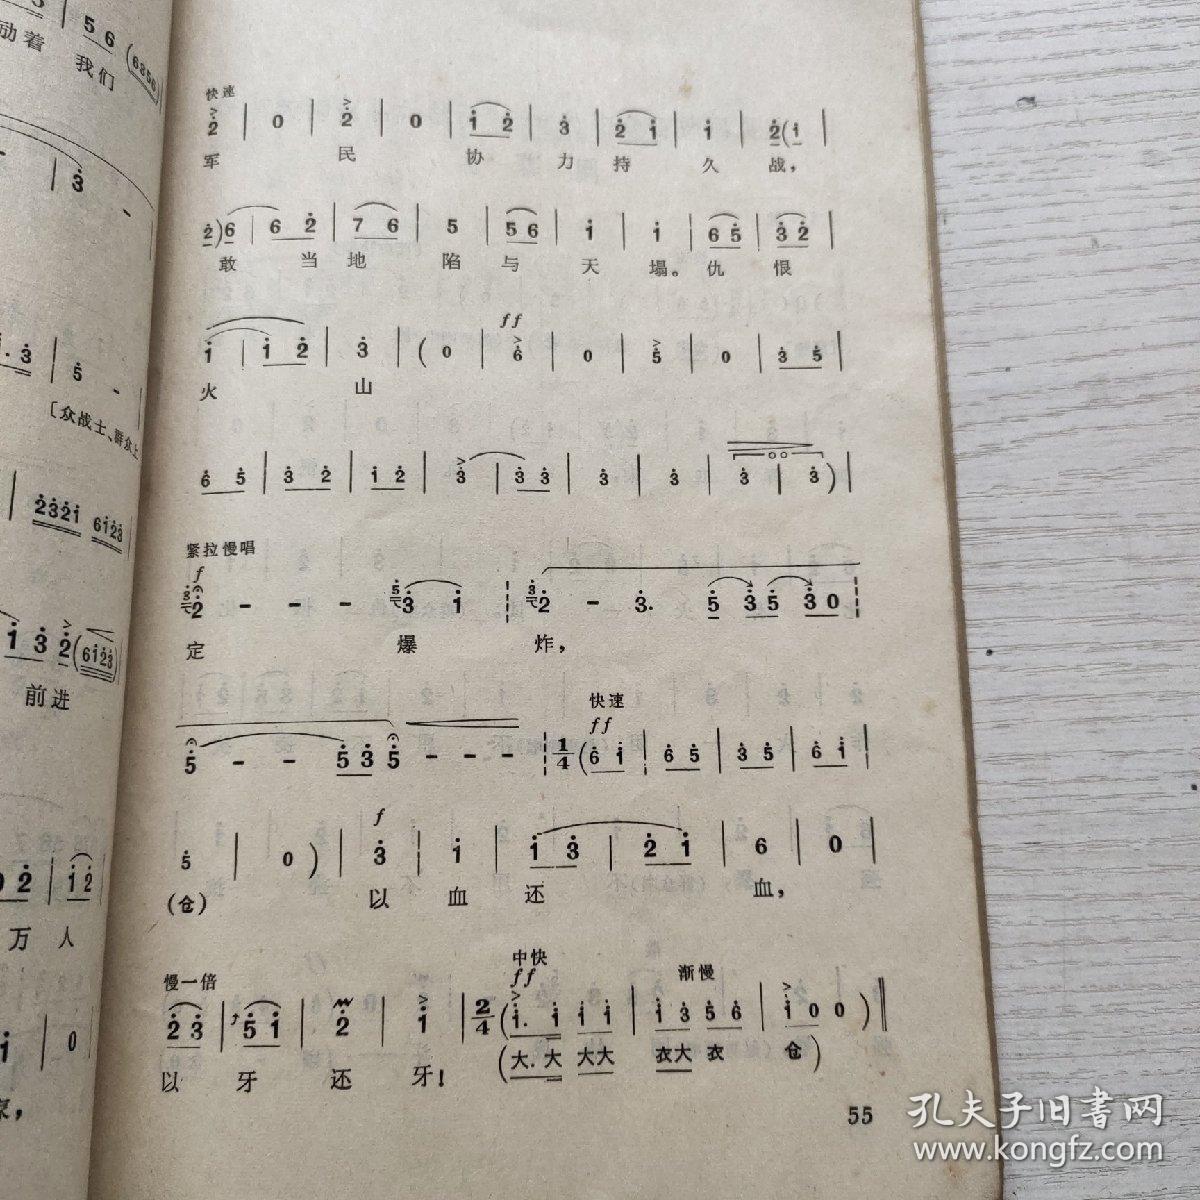 励着 我们
快速
2 | 0 | 2 | 0 | 1 2 | 3 | 2 1 | 1 | 2 ( 1 |
军 民 协 力 持 久 战，
2 ) 6 | 6 2 | 7 6 | 5 | 5 6 | 1 | 1 | 6 5 | 3 2 |
敢 当 地 陷 与 天 塌。 仇 恨
ff
1 | 1 2 | 3 | ( 0 | 6 | 0 | 5 | 0 | 3 5 |
火 山
〔众战士、群众上
6 5 | 3 2 | 1 2 | 3 | 3 3 | 3 | 3 | 3 | 3 ) |
紧拉慢唱
f
2 - - - 3 1 ¦ 2 - 3. 5 3 5 3 0 ¦
定 爆 炸，
前进
快速
ff
5 - - 5 3 5 - - - ¦ 1/4 ( 6 1 ¦ 6 5 | 3 5 | 6 1 |
f
5 | 0 ) | 3 ¦ 1 | 1 3 | 2 1 | 6 | 0 |
(仓) 以 血 还 血，
万 人
慢一倍 中快 渐慢
ff
2 3 | 5 1 | 2 | 1 | 2/4 ( 1. 1 1 1 | 1 3 5 6 | 1 0 0 ) ‖
(大. 大 大大 衣大 衣 仓)
以 牙 还 牙！
55
孔夫子旧书网
www.kongfz.com